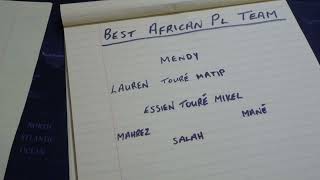 BEST AFRICAN PL TEAM
MENDY
LAUREN TOURÉ MATIP
ESSIEN TOURÉ MIKEL
MAHREZ SALAH MANÉ
NORTH
ATLANTIC
OCEAN